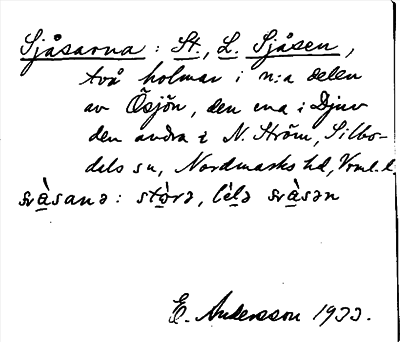 Sjåsarna : St., L. Sjåsen,
två holmar i n:a delen
av Ösjön, den ena i Djuv
den andra i N. Ström, Silbo-
dals sn, Nordmarks hd, Vrml. l.
svå̀sanə : stø̀rə, lèlə svå̀sən
E. Andersson 1933.